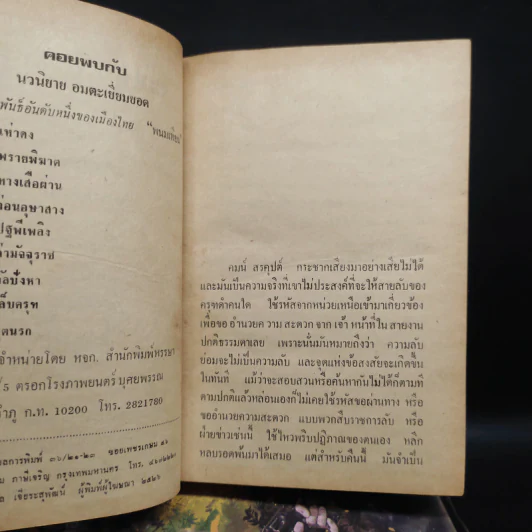 คอยพบกับ
นวนิยาย อมตะเยี่ยมยอด
พันธ์อันดับหนึ่งของเมืองไทย "พนมเทียน"
เห่าดง
พรายพิฆาต
ทางเสือผ่าน
ก่อนอุษาสาง
ปฐพีเพลิง
มัจจุราช
เล็บครุฑ
จำหน่ายโดย หจก. สำนักพิมพ์พรรษา
5 ตรอกโรงภาพยนตร์ บุศยพรรณ
ลำภู ก.ท. 10200 โทร. 2821780
ซอยเพชรเกษม
ภาษีเจริญ กรุงเทพมหานคร โทร.
เจียระสุพัฒน์ ผู้พิมพ์ผู้โฆษณา ๒๕๒๖
คมน์ สรคุปต์ กระชากเสียงมาอย่างเสียไม่ได้
และมันเป็นความจริงที่เขาไม่ประสงค์ที่จะให้สายลับของ
ครุฑดำคนใด ใช้รหัสจากหน่วยเหนือเข้ามาเกี่ยวข้อง
เพื่อขอ อำนวยความ สะดวก จาก เจ้า หน้าที่ใน สายงาน
ปกติธรรมดาเลย เพราะนั่นมันหมายถึงว่า ความลับ
ย่อมจะไม่เป็นความลับ และจุดแห่งข้อสงสัยจะเกิดขึ้น
ในทันที แม้ว่าจะสอบสวนหรือค้นหากันไม่ได้ก็ตามที
ตามปกติแล้วหล่อนเองก็ไม่เคยใช้รหัสขอผ่านทาง หรือ
ขออำนวยความสะดวก แบบพวกสืบราชการลับ หรือ
ฝ่ายข่าวเช่นนี้ ใช้ไหวพริบปฏิภาณของตนเอง หลีก
หลบรอดพ้นมาได้เสมอ แต่สำหรับคืนนี้ มันจำเป็น